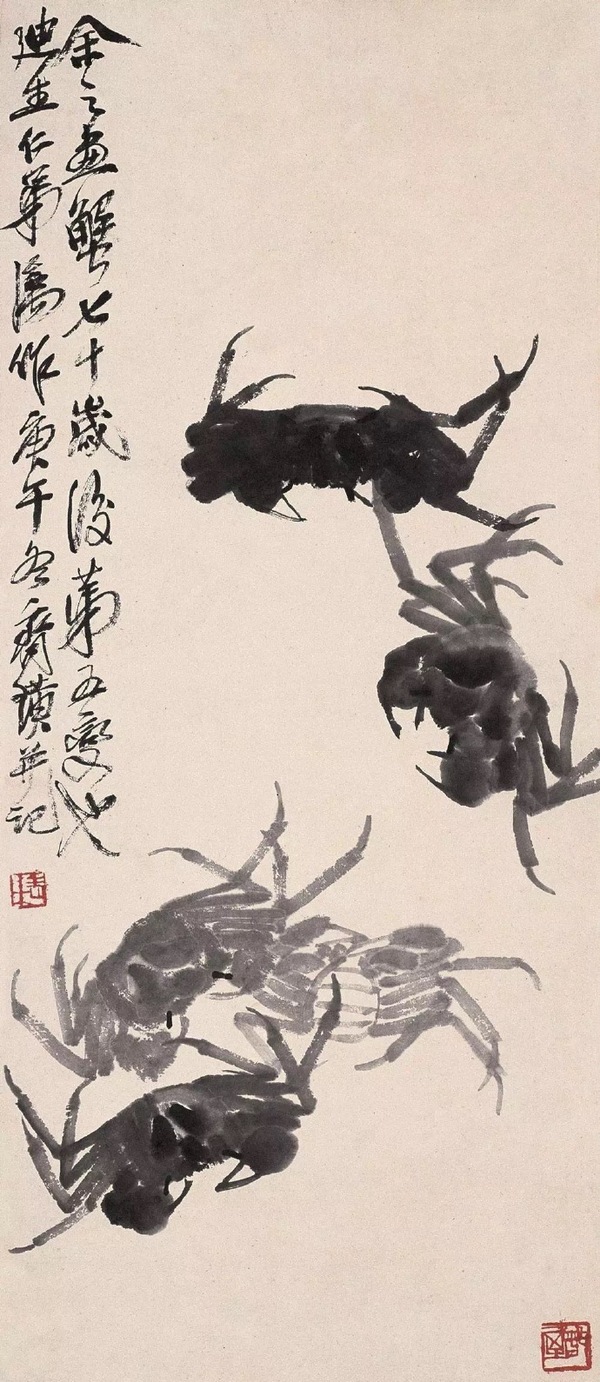 余之画蟹七十岁后第五变也
迪生仁弟属作庚午冬齐璜并记